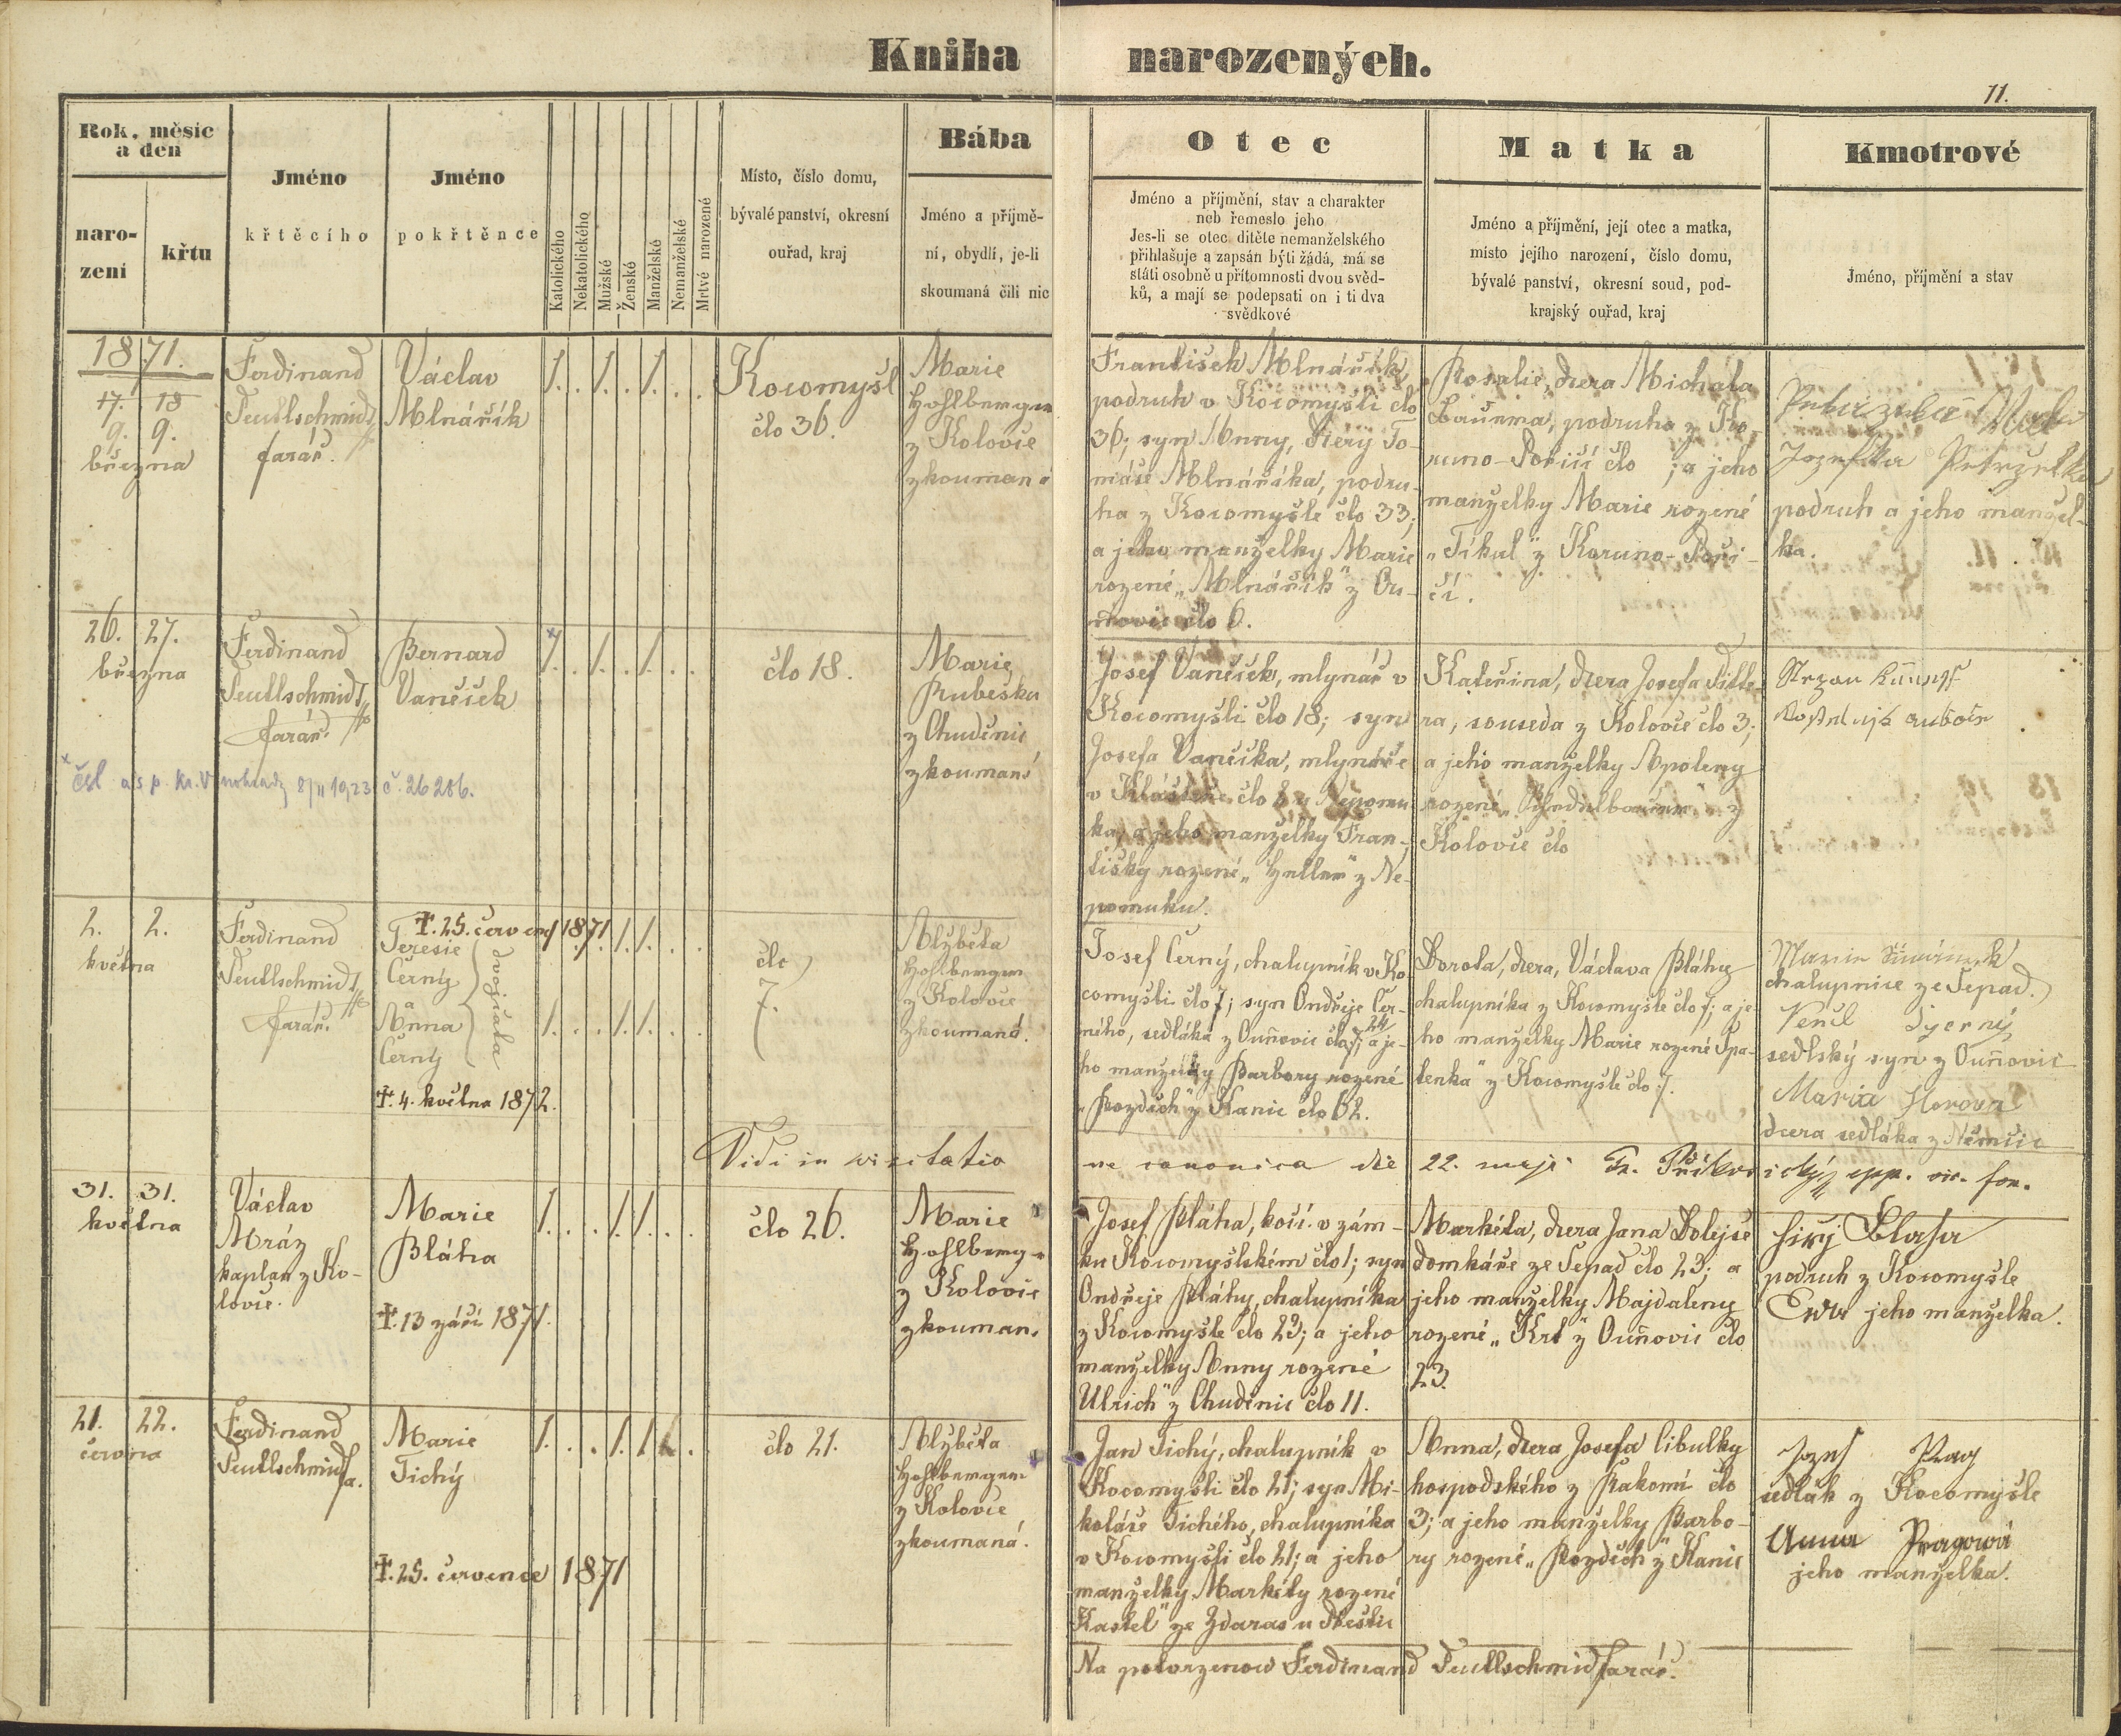 Kniha narozených.
11.
Rok, měsíc
a den
naro-
zení
křtu
Jméno
křtěcího
Jméno
pokřtěnce
Katolického
Nekatolického
Mužské
Ženské
Manželské
Nemanželské
Mrtvé narozené
Místo, číslo domu,
bývalé panství, okresní
ouřad, kraj
Bába
Jméno a příjmě-
ní, obydlí, je-li
skoumaná čili nic
Otec
Jméno a příjmění, stav a charakter
neb řemeslo jeho
Jes-li se otec ditěte nemanželského
přihlašuje a zapsán býti žádá, má se
státi osobně u přítomnosti dvou svěd-
ků, a mají se podepsati on i ti dva
svědkové
Matka
Jméno a příjmění, její otec a matka,
místo jejího narození, číslo domu,
bývalé panství, okresní soud, pod-
krajský ouřad, kraj
Kmotrové
Jméno, příjmění a stav
1871.
9. 9.
března
Ferdinand
Teutlschmid
farář.
Václav
Mlnářík
1. . 1. . 1. . .
Kocomyšl
člo 36.
Marie
Hohlberger
z Kolovče
zkoumaná
František Mlnářík,
podruh v Kocomyšli člo
36; syn Anny, dcery To-
máše Mlnáříka, podru-
ha z Kocomyšle člo 33;
a jeho manželky Marie
rozené „Mlnářík" z Ou-
ňovic člo 6.
Rosalie, dcera Michala
podruha z Ko-
runo-Poříčí člo ; a jeho
manželky Marie rozené
„Tikal" z Koruno-Poří-
čí.
Josefka Petrželka
podruh a jeho manžel-
ka.
26. 27.
března
Ferdinand
Teutlschmid
farář.
Bernard
Vaněček
1. . 1. . 1. . .
člo 18.
Marie
Rubeška
z Chuděnic
zkoumaná
Josef Vaněček, mlynář v
Kocomyšli člo 18; syn
Josefa Vaněčka, mlynáře
v Klášteře člo 8 u Nepomu
ka, a jeho manželky Fran-
tišky rozené „Heller" z Ne-
pomuku.
Kateřina, dcera Josefa Ditte-
ra, souseda z Kolovče člo 3;
a jeho manželky Apoleny
rozené z
Kolovče člo
čsl č. 26206.
2. 2.
května
Ferdinand
Teutlschmid
farář.
†. 25. července 1871
Teresie
Černý
Anna
Černý
dvojčata
†. 4. května 1872.
člo
7.
Alžběta
Hohlberger
z Kolovče
zkoumaná.
Josef Černý, chalupník v Ko-
comyšli člo 7; syn Ondřeje Čer-
ného, sedláka z Ouňovic člo 24; a je-
ho manželky Barbory rozené
„Pozděch" z Kanic člo 62.
Dorota, dcera, Václava Bláhy
chalupníka z Kocomyšle člo 7; a je-
ho manželky Marie rozené Špa-
lenka" z Kocomyšle člo 7.
chalupnice ze Šepad.
sedlský syn z Ouňovic
Marie Horova
dcera sedláka z Němčic
Vidi in visitatio
ne canonica die 22. maji
31. 31.
května
Václav
Mráz
kaplan z Ko-
lovče.
Marie
Bláha
†. 13 září 1871.
1. . . 1. 1. . .
člo 26.
Marie
Hohlberger
z Kolovče
zkouman.
Josef Bláha, kočí v zám-
ku Kocomyšlském člo 1; syn
Ondřeje Bláhy, chalupníka
z Kocomyšle člo 23; a jeho
manželky Anny rozené
Ulrich" z Chuděnic člo 11.
Markéta, dcera Jana Dolejše
domkáře ze Šepad člo 23; a
jeho manželky Majdaleny
rozené „Krt" z Ouňovic člo
23.
Jirj Blaha
podruh z Kocomyšle
Ewa jeho manželka.
21. 22.
června
Ferdinand
Teutlschmid
fa.
Marie
Tichý
†. 25. července 1871
člo 21.
Alžběta
Hohlberger
z Kolovče
zkoumaná.
Jan Tichý, chalupník v
Kocomyšli člo 21; syn Mi-
koláše Tichého, chalupníka
v Kocomyšli člo 21; a jeho
manželky Markéty rozené
Kastel" ze Ždaras u Přeštic
Anna, dcera Josefa Cibulky
hospodského z Rakomi člo
3; a jeho manželky Barbo-
ry rozené „Pozděch" z Kanic
Josef Prag
sedlák z Kocomyšle
Anna Pragowá
jeho manželka.
Na potvrzenow Ferdinand Teutlschmid farář.